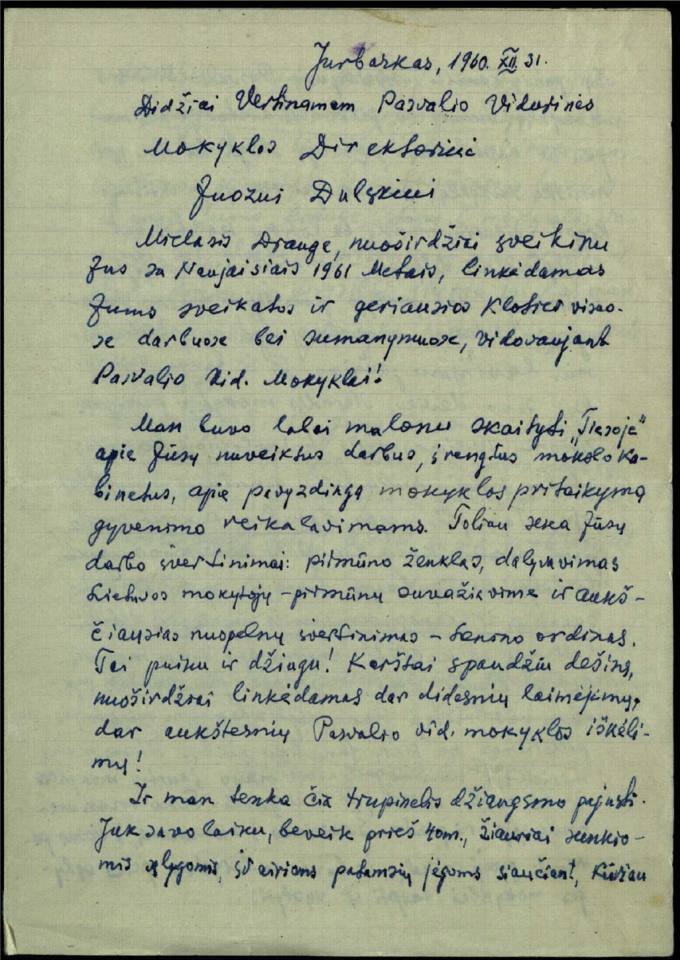 Jurbarkas, 1960.XII.31.
Didžiai Vertinamam Pasvalio Vidurinės
Mokyklos Direktoriui
Juozui Dulskiui
Mielasis Drauge, nuoširdžiai sveikinu
Jus su Naujaisiais 1961 Metais, linkėdamas
Jums sveikatos ir geriausios Kloties viso-
se darbuose bei sumanymuose, vadovaujant
Pasvalio Vid. Mokyklai!
Man buvo labai malonu skaityti „Tiesoje"
apie Jūsų nuveiktus darbus, įrengtus mokslo ka-
binetus, apie pavyzdingą mokyklos pritaikymą
gyvenimo reikalavimams. Toliau seka Jūsų
darbo įvertinimai: pirmūno ženklas, dalyvavimas
Lietuvos mokytojų-pirmūnų suvažiavime ir aukš-
čiausias nuopelnų įvertinimas – Lenino ordinas.
Tai puiku ir džiugu! Karštai spaudžiu dešinę,
nuoširdžiai linkėdamas dar didesnių laimėjimų,
dar aukštesnių Pasvalio vid. mokyklos iškėli-
mų!
Ir man tenka čia trupinėlis džiaugsmo pajusti.
Juk savo laiku, beveik prieš 40 m., žiauriai sunkio-
mis sąlygomis, įvairioms patamsių jėgoms siaučiant, kūriau